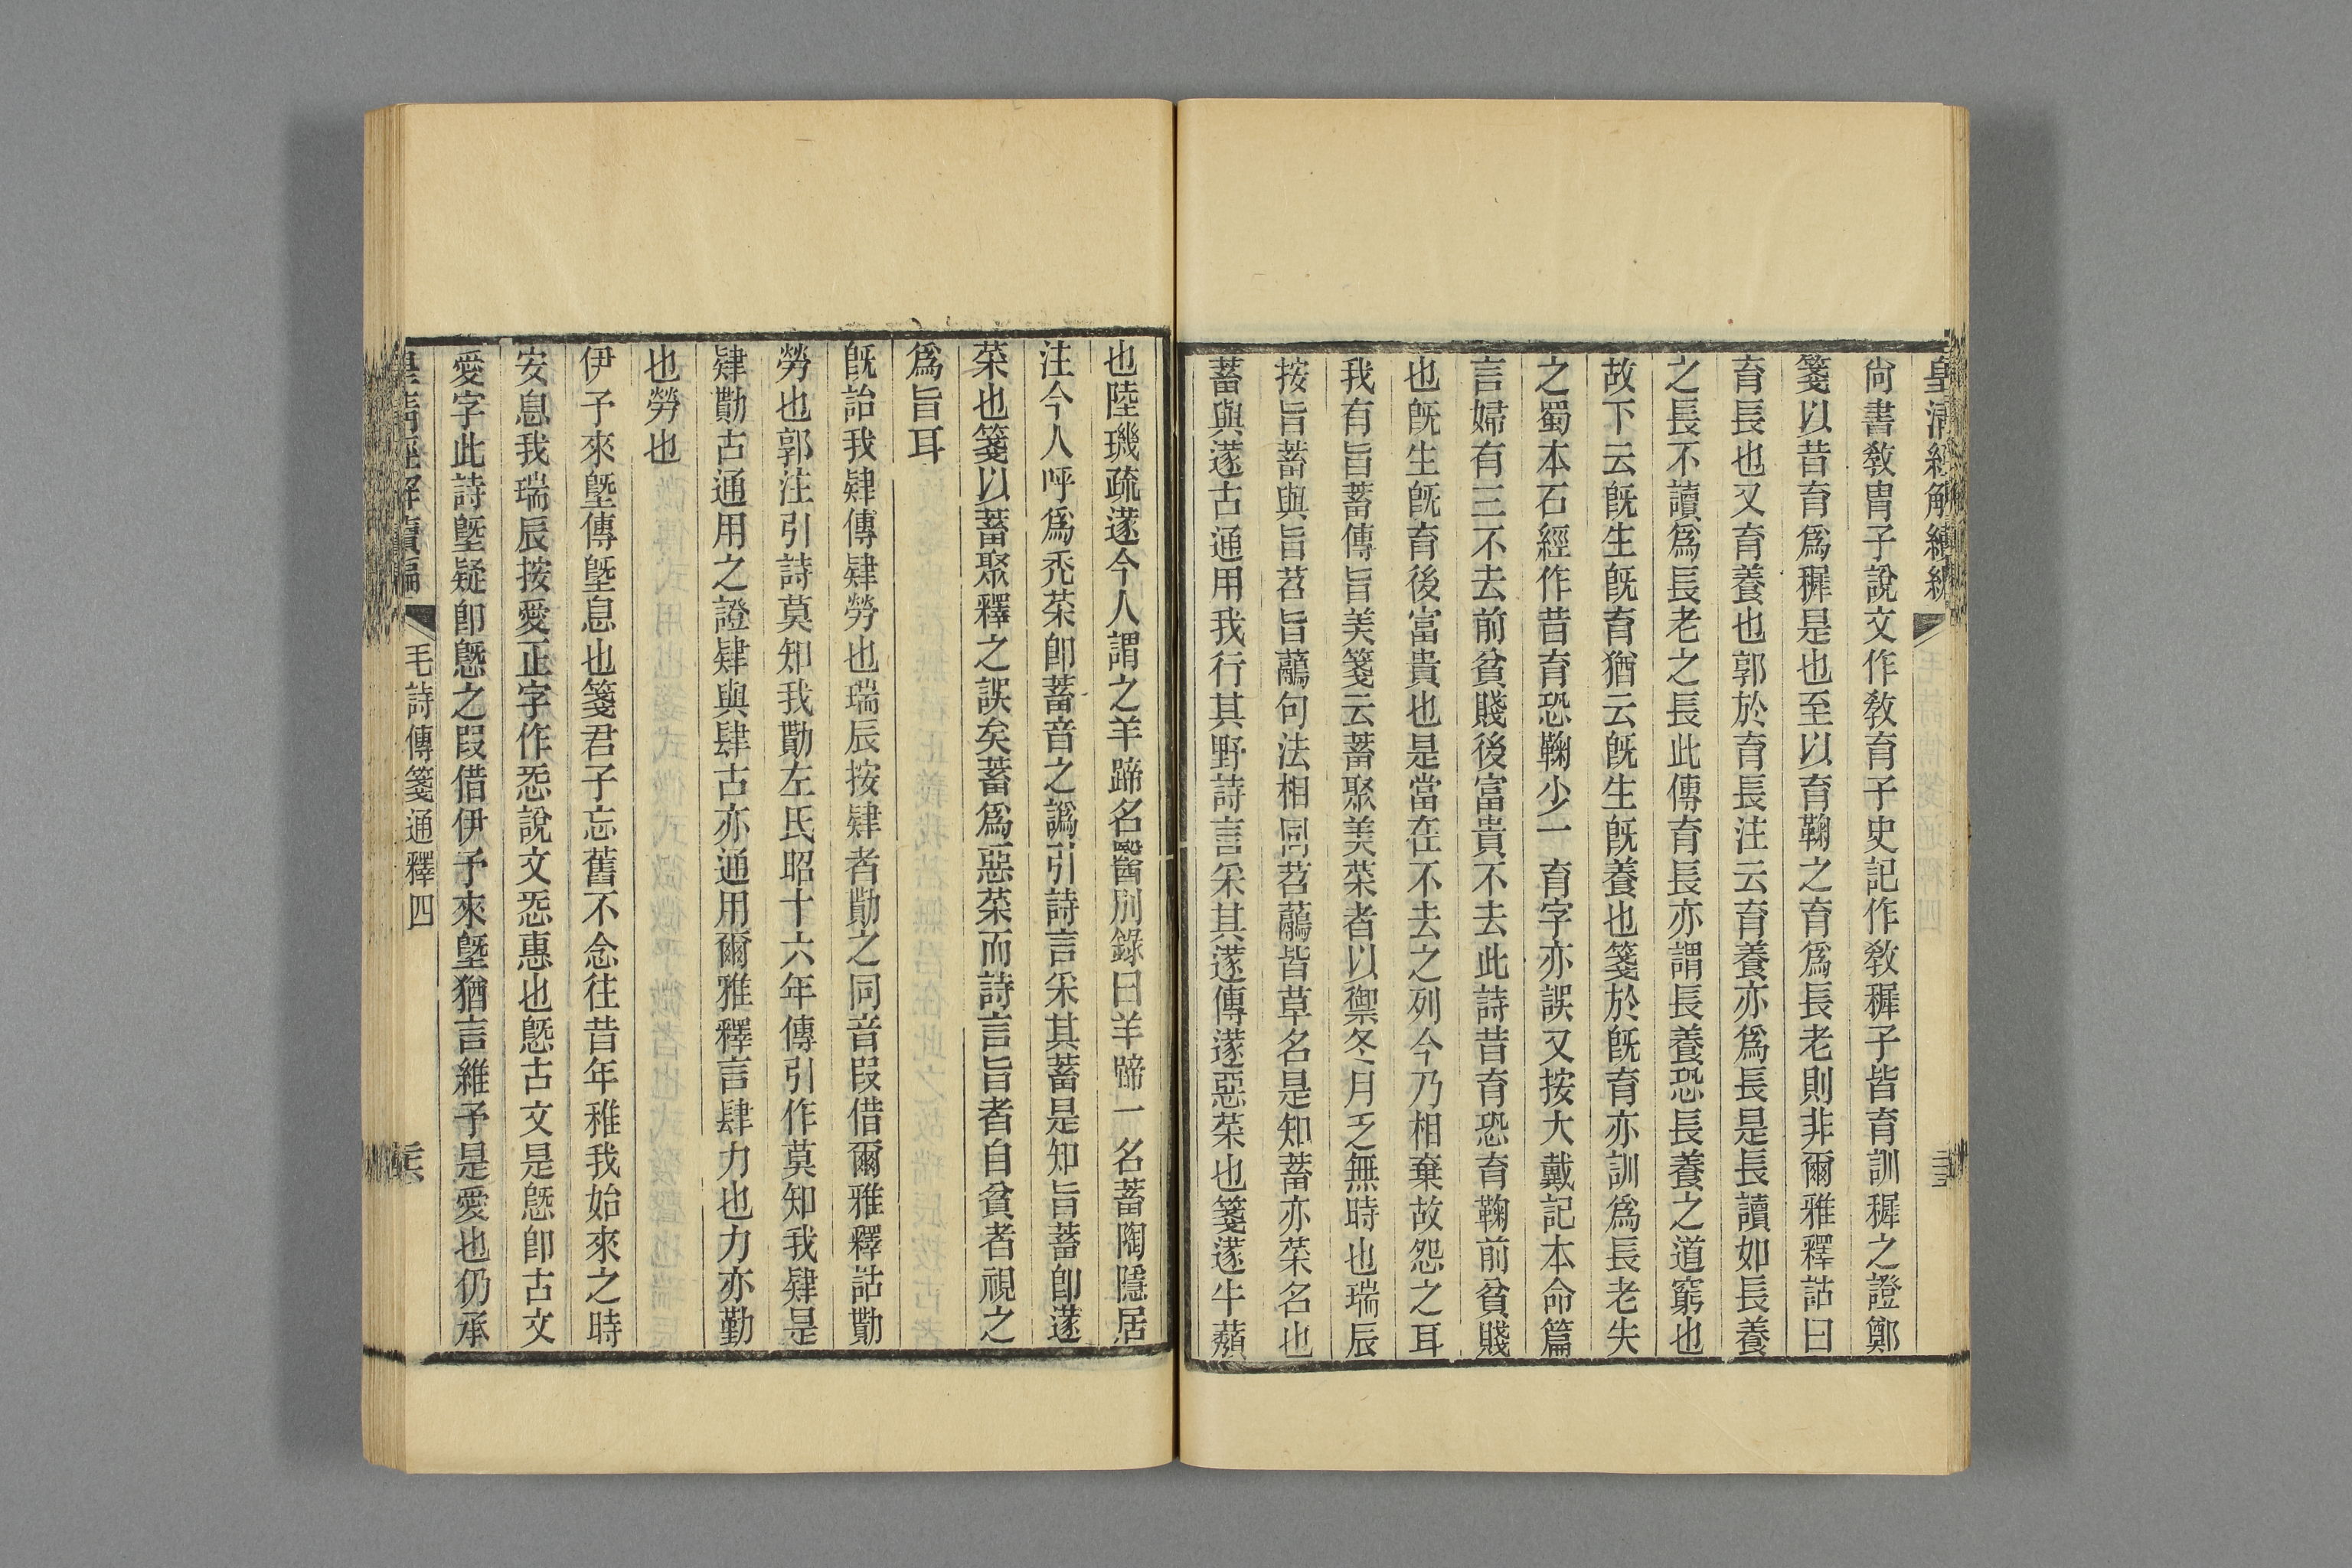 皇清經解續編
尙書敎胄子說文作敎育子史記作敎穉子皆育訓穉之證鄭
箋以昔育爲穉是也至以育鞠之育爲長老則非爾雅釋詁曰
育長也又育養也郭於育長注云育養亦爲長是長讀如長養
之長不讀爲長老之長此傳育長亦謂長養恐長養之道窮也
故下云旣生旣育猶云旣生旣養也箋於旣育亦訓爲長老失
之蜀本石經作昔育恐鞠少一育字亦誤又按大戴記本命篇
言婦有三不去前貧賤後富貴不去此詩昔育恐育鞠前貧賤
也旣生旣育後富貴也是當在不去之列今乃相棄故怨之耳
我有旨蓄傳旨美箋云蓄聚美菜者以禦冬月乏無時也瑞辰
按旨蓄與旨苕旨鷊句法相同苕鷊皆草名是知蓄亦菜名也
蓄與蓫古通用我行其野詩言采其蓫傳蓫惡菜也箋蓫牛蘈
也陸璣疏蓫今人謂之羊蹄名醫別錄曰羊蹄一名蓄陶隱居
注今人呼爲禿菜卽蓄音之譌引詩言采其蓄是知旨蓄卽蓫
菜也箋以蓄聚釋之誤矣蓄爲惡菜而詩言旨者自貧者視之
爲旨耳
旣詒我肄傳肄勞也瑞辰按肄者勩之同音叚借爾雅釋詁勩
勞也郭注引詩莫知我勩左氏昭十六年傳引作莫知我肄是
肄勩古通用之證肄與肆古亦通用爾雅釋言肆力也力亦勤
也勞也
伊予來墍傳墍息也箋君子忘舊不念往昔年稚我始來之時
安息我瑞辰按愛正字作㤅說文㤅惠也㤥古文是㤥卽古文
愛字此詩墍疑卽㤥之叚借伊予來墍猶言維予是愛也仍承
皇清經解續編
毛詩傳箋通釋四